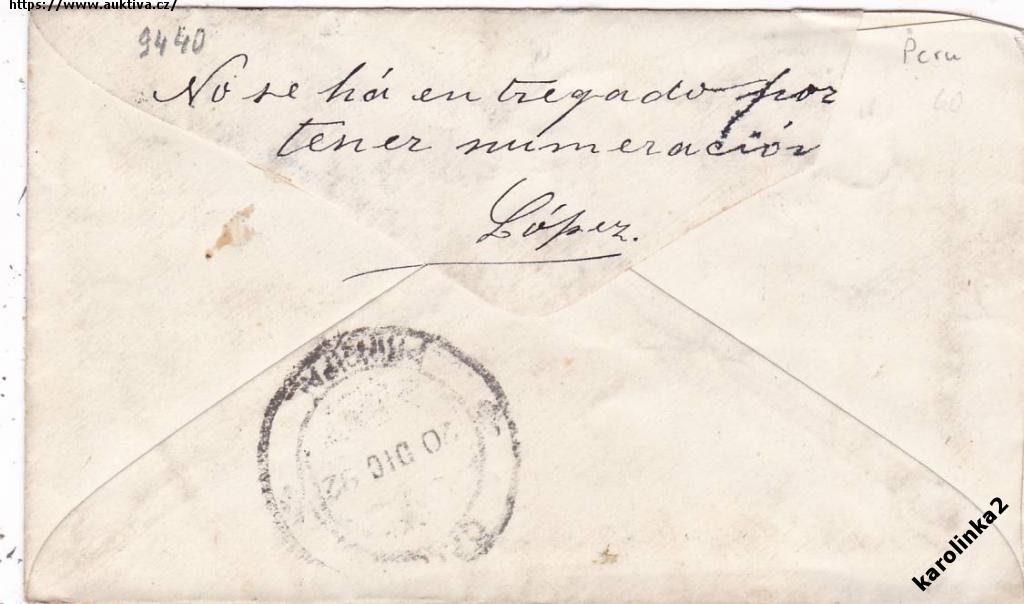 https://www.auktiva.cz/
9440
Peru
60
No se há entregado por
tener numeración
López.
20 DIC 92
karolinka2